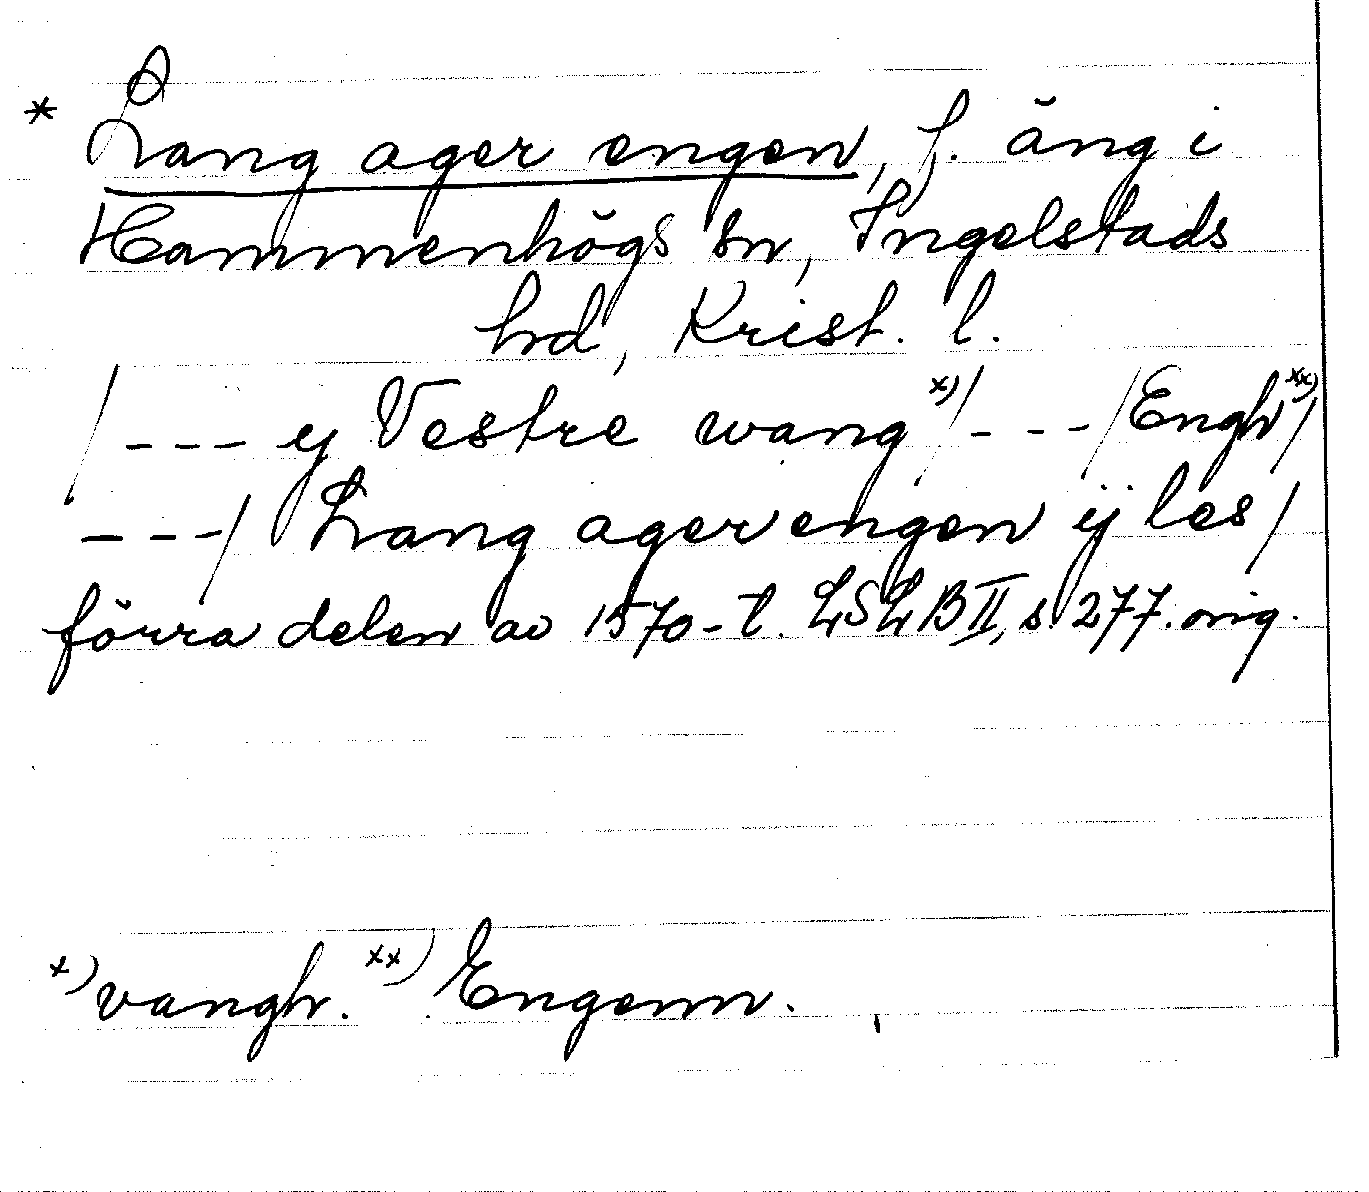 * Lang ager engen, f. äng i
Hammenhögs sn, Ingelstads
hrd, Krist. l.
/--- y Vestre wang x)/---/Engh xx)/
---/ Lang ager engen ij les/
förra delen av 1570-t. LSLB II, s. 277. orig.
x) vangh. xx) Engenn.